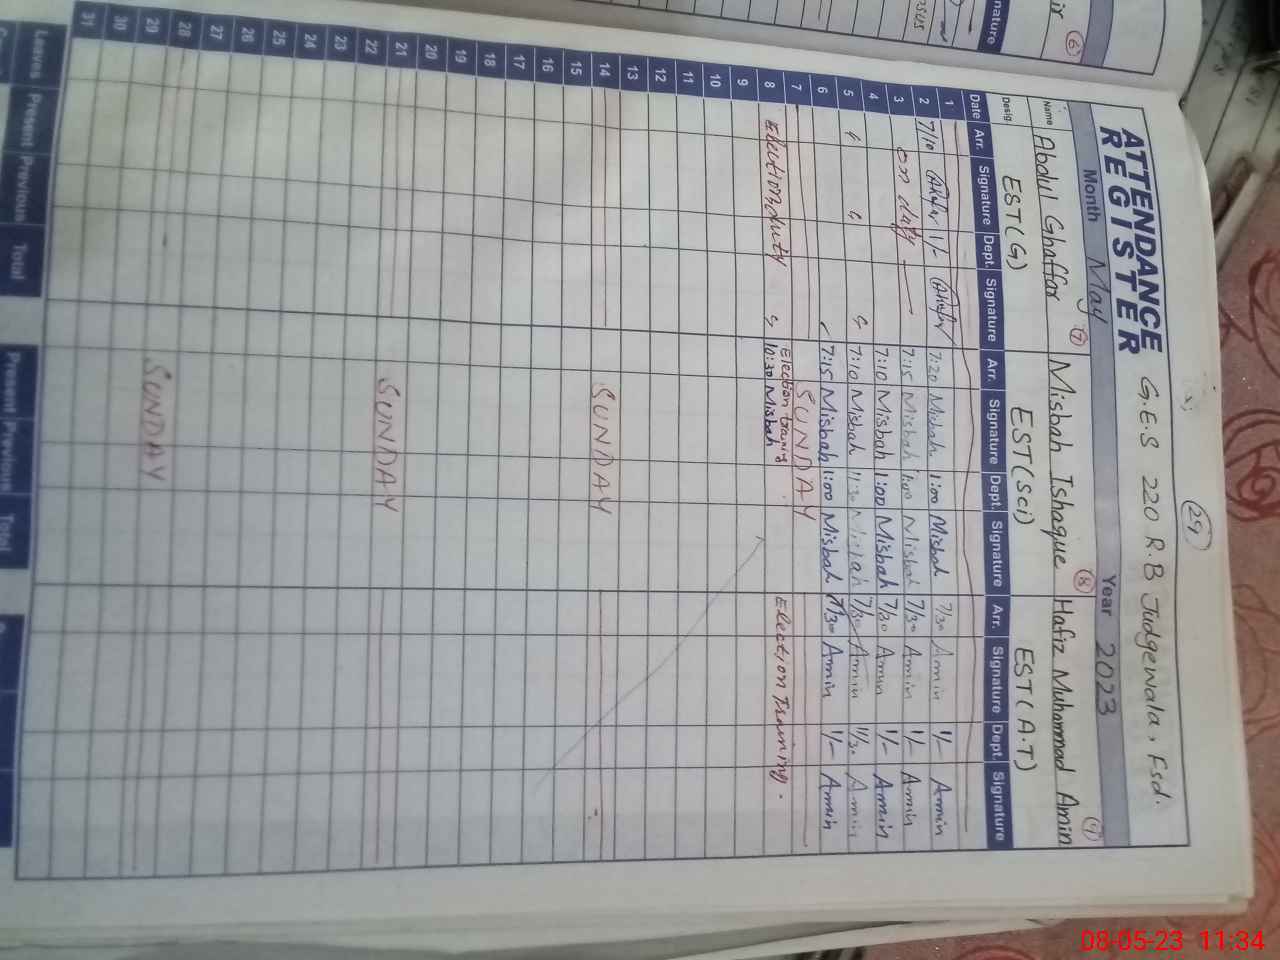 29
ATTENDANCE REGISTER G.E.S 220 R.B Judgewala, Fsd.
Month May Year 2023
Name Abdul Ghaffar 7 Misbah Ishaque 8 Hafiz Muhammad Amin 9
Desig EST(G) EST(Sci) EST(A.T)
Date Arr. Signature Dept. Signature Arr. Signature Dept. Signature Arr. Signature Dept. Signature
1
2 7/10 1/- 7:20 Misbah 1:00 Misbah 7/30 Amin 1/- Amin
3 on duty 7:15 Misbah 1:00 Misbah 7/30 Amin 1/- Amin
4 7:10 Misbah 1:00 Misbah 7/30 Amin 1/- Amin
5 7:10 Misbah 11:30 Misbah 7/30 Amin 11/30 Amin
6 7:15 Misbah 1:00 Misbah 7/30 Amin 1/- Amin
7 SUNDAY
8 Election duty Election training 10:30 Misbah Election Training.
9
10
11
12
13
14 SUNDAY
15
16
17
18
19
20
21 SUNDAY
22
23
24
25
26
27
28
29 SUNDAY
30
31
Leaves Present Previous Total Present Previous Total
6
Signature
08-05-23 11:34